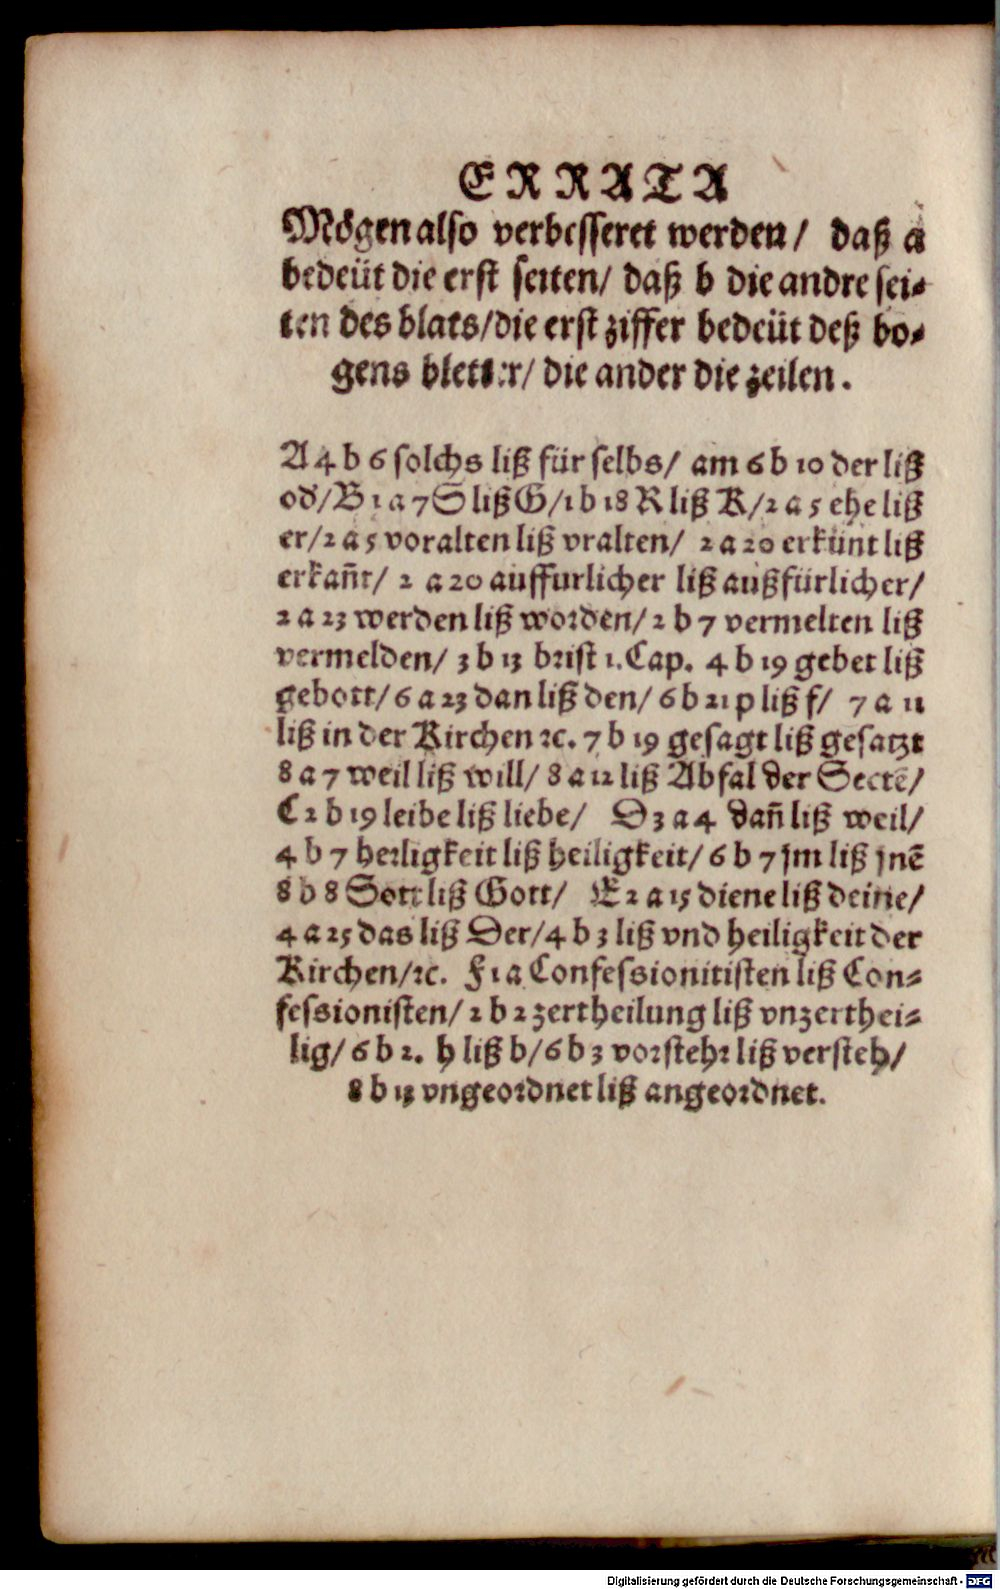 ERRATA
Mögen also verbesseret werden/ daß a
bedeüt die erst seiten/ daß b die andre sei-
ten des blats/die erst ziffer bedeüt deß bo-
gens bletter/ die ander die zeilen.
A 4 b 6 solchs liß für selbs/ am 6 b 10 der liß
od'/B 1 a 7 S liß G/1 b 18 R liß K/2 a 5 ehe liß
er/2 a 5 voralten liß vralten/ 2 a 20 erkünt liß
erkañt/ 2 a 20 auffurlicher liß außfürlicher/
2 a 23 werden liß worden/2 b 7 vermelten liß
vermelden/ 3 b 13 brist 1.Cap. 4 b 19 gebet liß
gebott/6 a 23 dan liß den/ 6 b 21 p liß f/ 7 a 11
liß in der Kirchen ꝛc. 7 b 19 gesagt liß gesatzt
8 a 7 weil liß will/ 8 a 12 liß Abfal der Sectẽ/
C 2 b 19 leibe liß liebe/ D 3 a 4 dañ liß weil/
4 b 7 herligkeit liß heiligkeit/ 6 b 7 jm liß jnẽ
8 b 8 Sott liß Gott/ E 2 a 15 diene liß deine/
4 a 25 das liß Der/4 b 3 liß vnd heiligkeit der
Kirchen/ꝛc. F 1 a Confessionitisten liß Con-
fessionisten/ 2 b 2 zertheilung liß vnzerthei-
lig/ 6 b 2. h liß b/6 b 3 vorstehr liß versteh/
8 b 13 vngeordnet liß angeordnet.
Digitalisierung gefördert durch die Deutsche Forschungsgemeinschaft - DFG